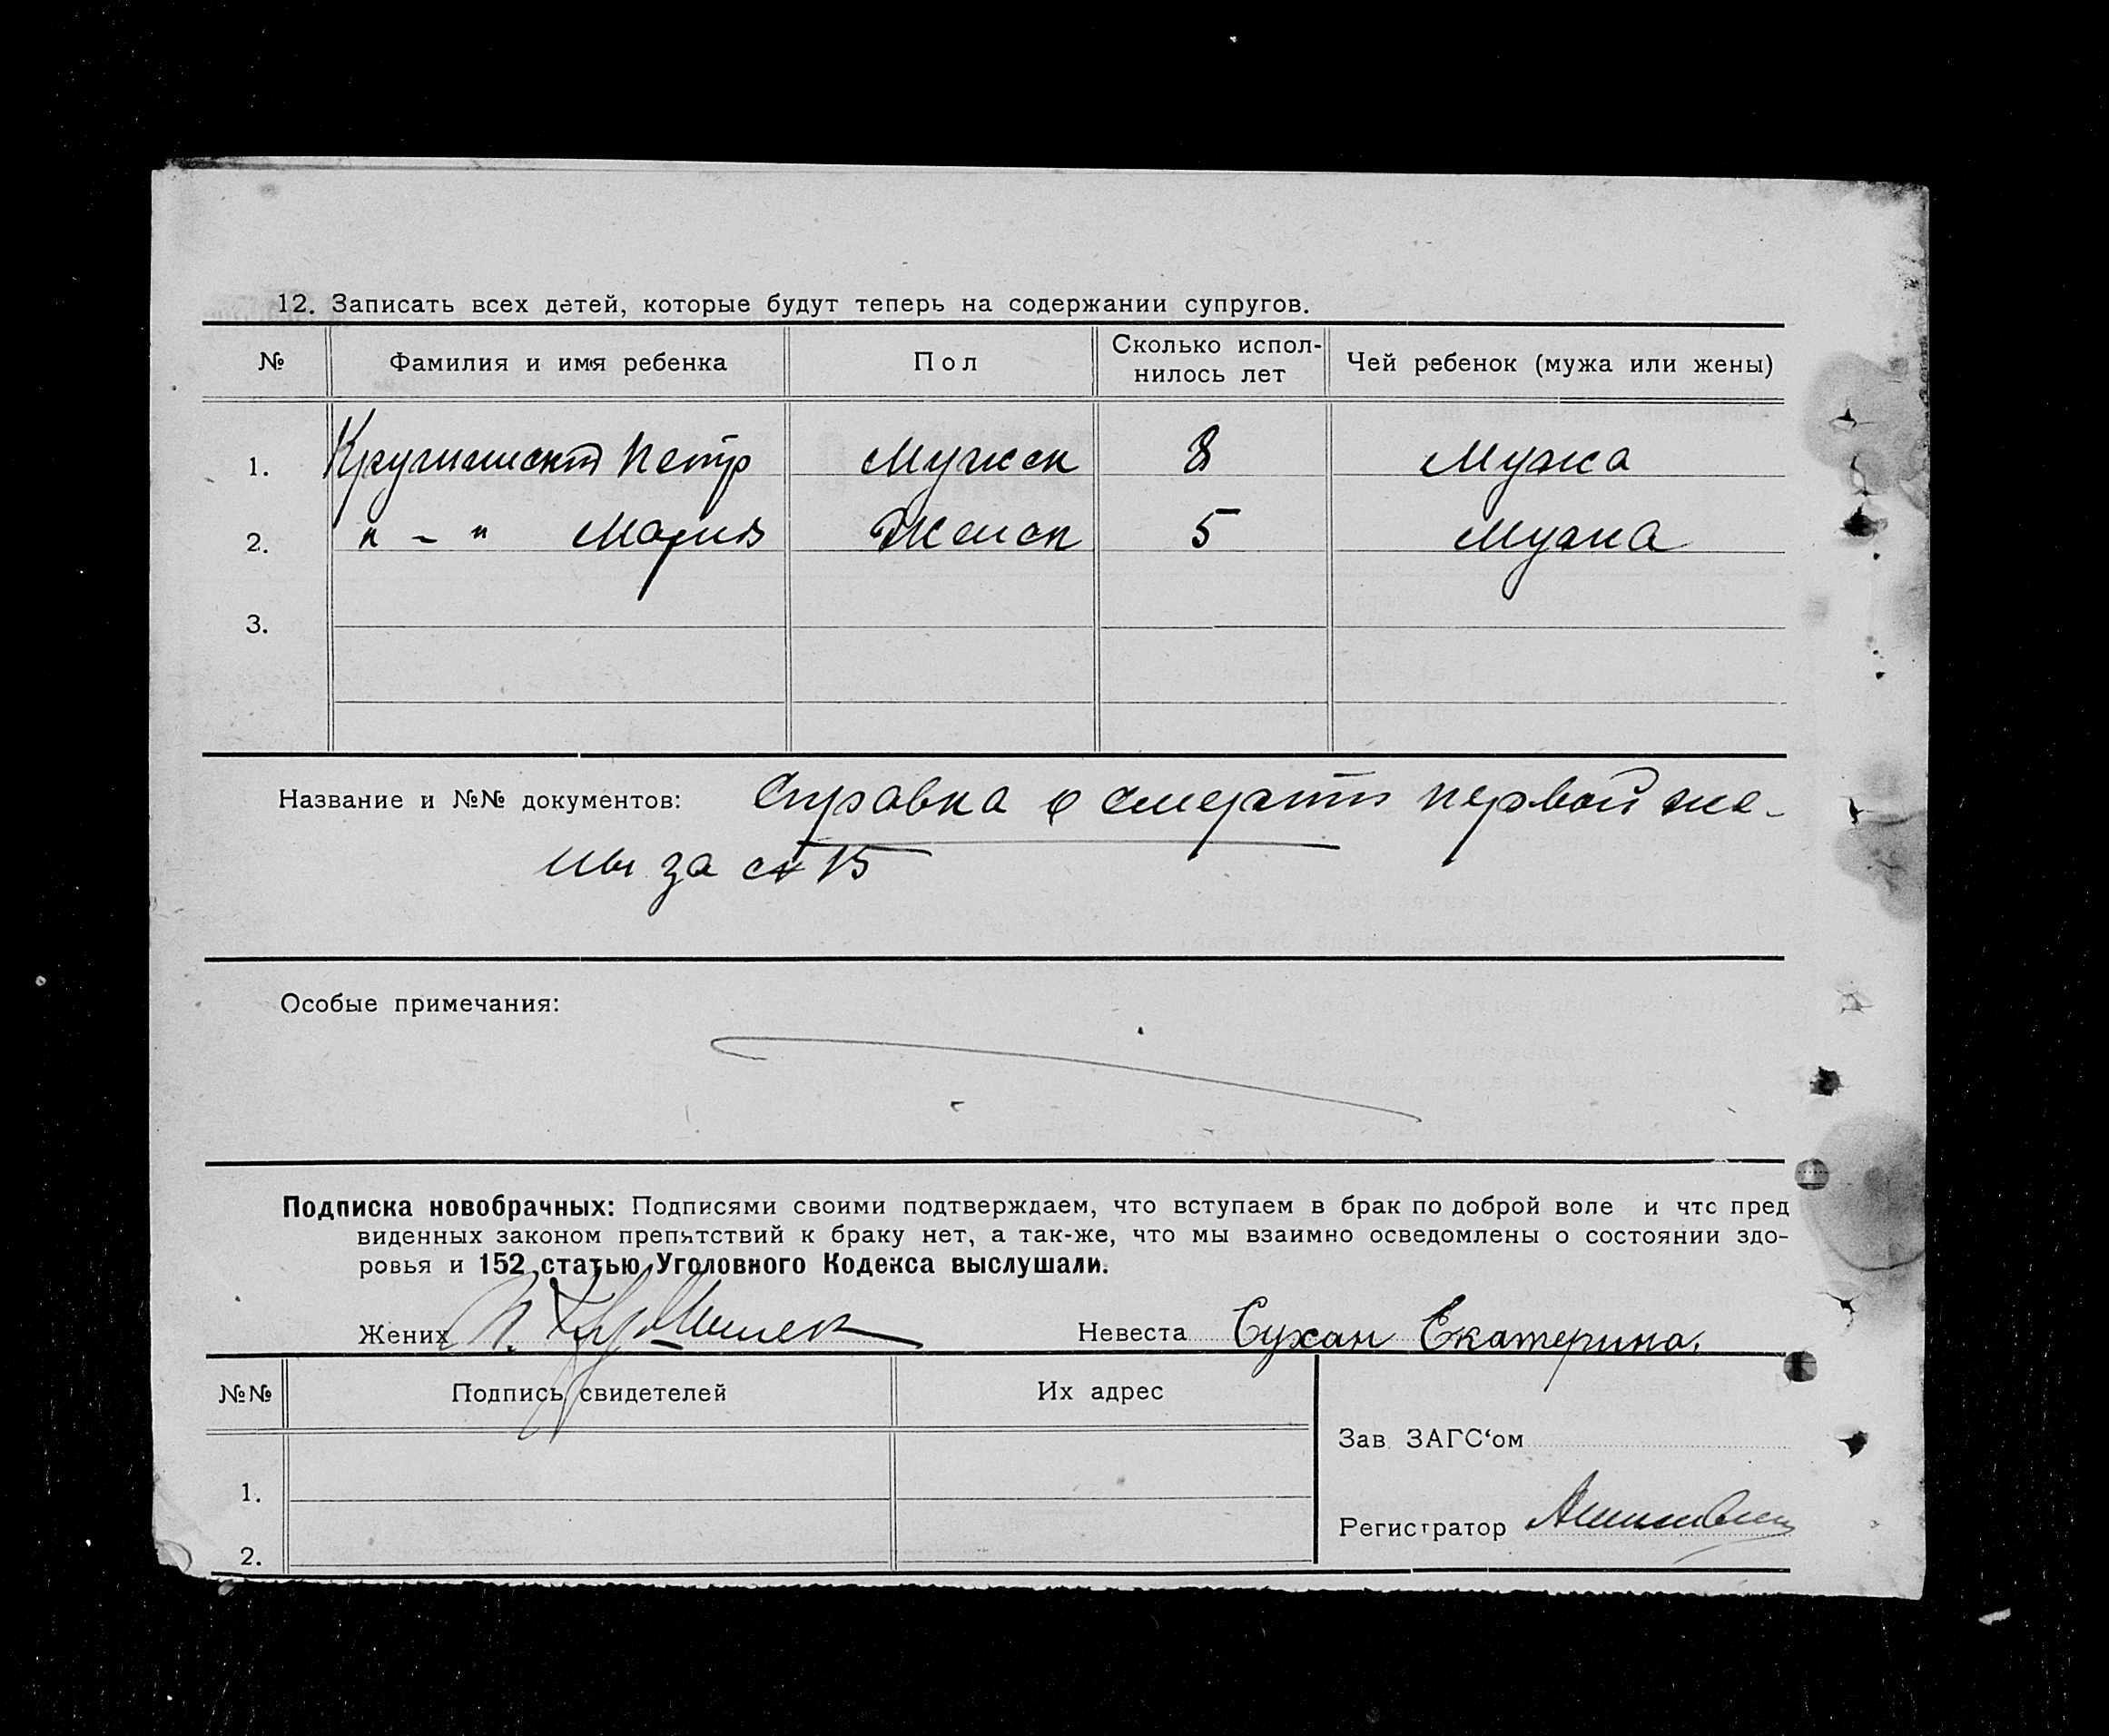 12. Записать всех детей, которые будут теперь на содержании супругов.
№ Фамилия и имя ребенка Пол Сколько испол- нилось лет Чей ребенок (мужа или жены)
1. Петр Мужск 8 Мужа
2. " - " Мария Женск 5 Мужа
3.
Название и №№ документов: Справка о смерти первой же-
ны за № 15
Особые примечания:
Подписка новобрачных: Подписями своими подтверждаем, что вступаем в брак по доброй воле и что пред
виденных законом препятствий к браку нет, а так-же, что мы взаимно осведомлены о состоянии здо-
ровья и 152 статью Уголовного Кодекса выслушали.
Жених Невеста Сухан Екатерина.
№№ Подпись свидетелей Их адрес
Зав. ЗАГС'ом
1.
Регистратор
2.